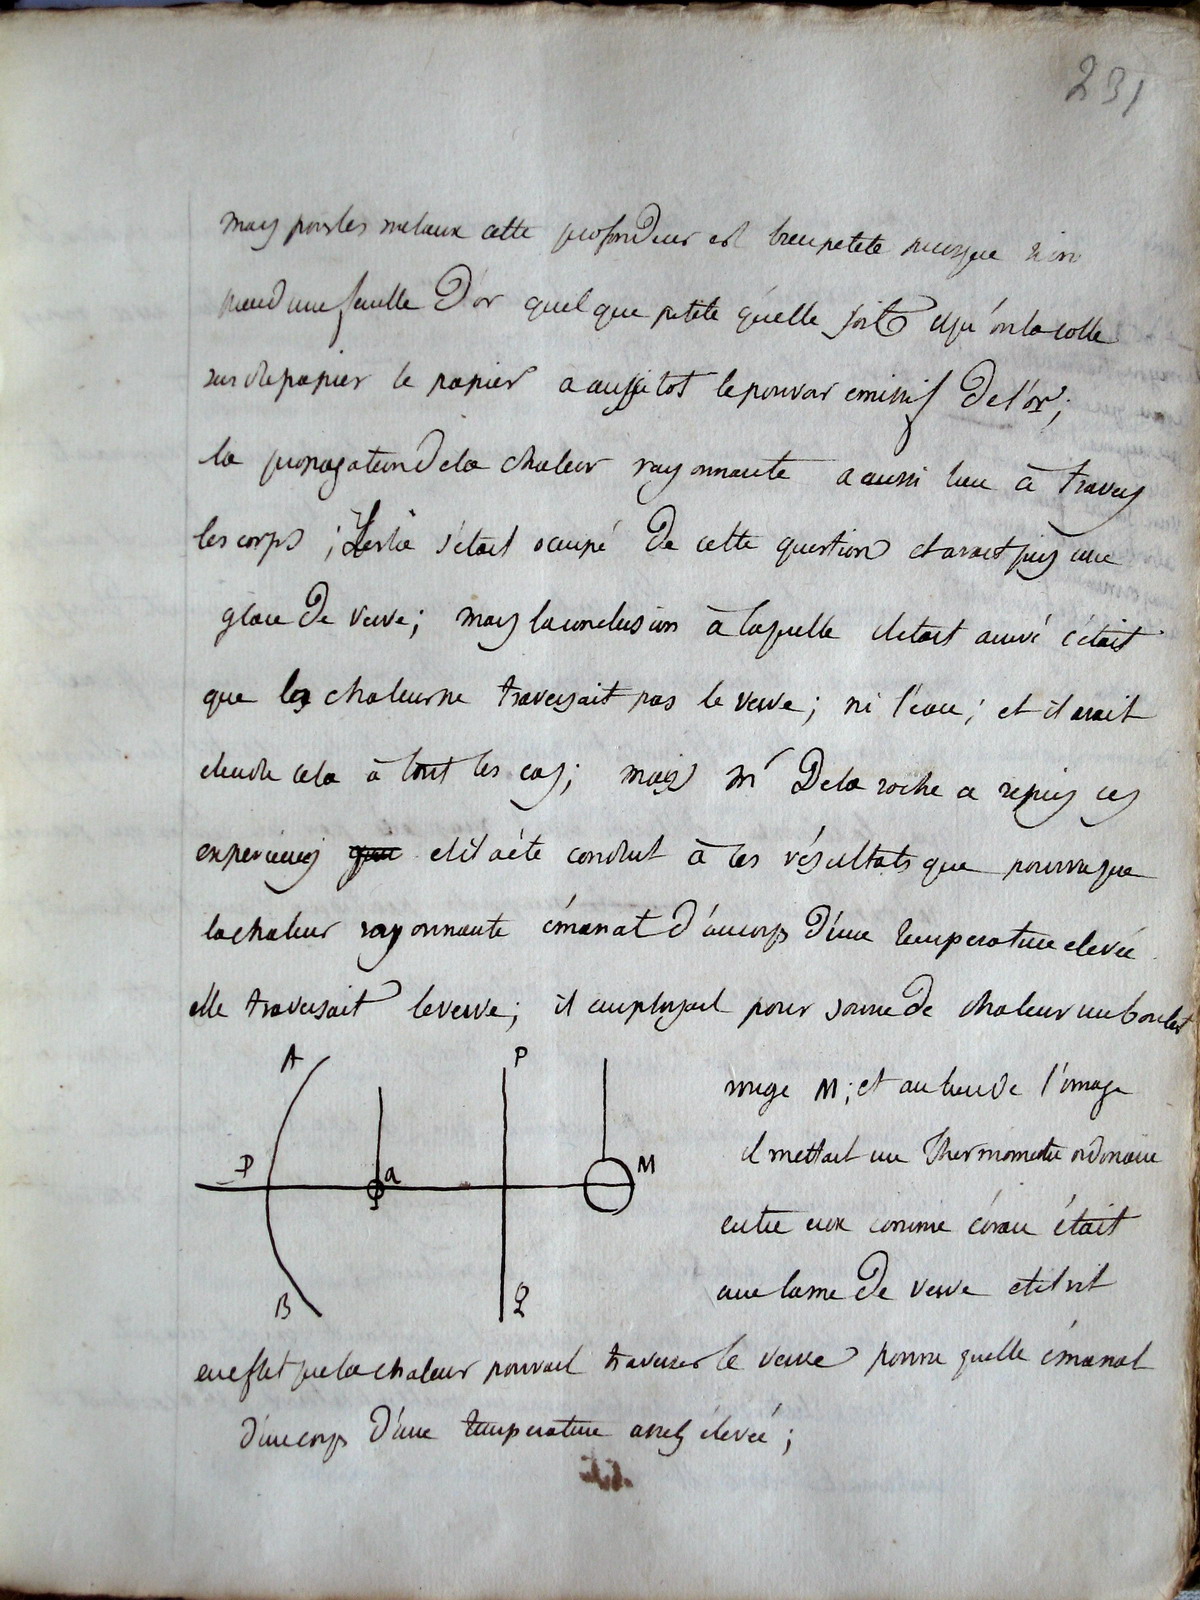 231
mais pour les metaux cette profondeur est bien petite puisque si on
prend une feuille d'or quelque petite qu'elle soit et qu'on la colle
sur du papier le papier a aussitot le pouvoir emissif de l'or;
la propagation de la chaleur rayonnante a aussi lieu à travers
les corps; Leslie s'était ocupé de cette question et avait pris une
glace de verre; mais la conclusion à laquelle il etait arrivé c'était
que la chaleur ne traversait pas le verre; ni l'eau; et il avait
etendu cela à tout les cas; mais mr Delaroche a repris ces
experiences et il a été conduit à ces résultats que pourvu que
la chaleur rayonnante émanat d'un corps d'une temperature elevée
elle traversait le verre; il employait pour source de chaleur un boulet
A
P
rouge M; et au lieu de l'image
il mettait un thermometre ordinaire
P
a
M
entre eux comme écran était
une lame de verre et il vit
B
Q
en effet que la chaleur pouvait traverser le verre pourvu quelle émanat
d'un corps d'une temperature assez élevée;